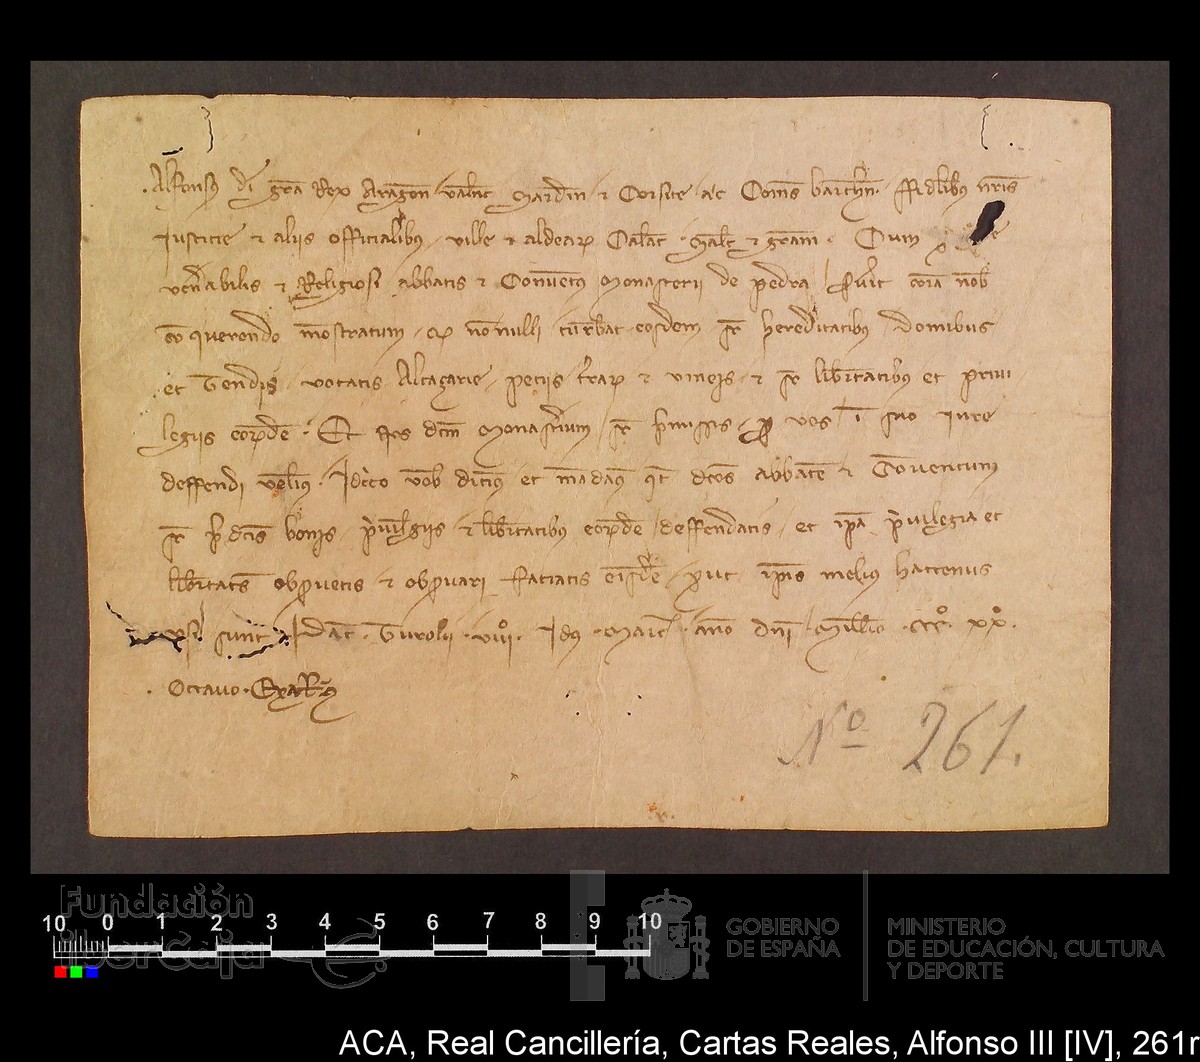 Alfonsus di gra Rex Aragon valenc Sardin et Corsice ac Comes barchn. ffidelibus nris
Justicie et aliis officialibus ville et aldear Calat . Salt et gram . Cum p
venabilis et Religiosi abbatis et Conventus Monasterii de pedra fuit cora nob
querendo monstratum q nonnulli turbat eosdem sr hereditatibus domibus
et Tendis vocatis Alcaçarie peciis trar et vineis et sr libertatibus et privi
legiis eorde . Et dcm Monasrium sr pmissis p vos i suo iure
deffendi velimus . Idcirco vob dicimus et mandamus qt dcos abbate et Conventum
sr pdcis bonis privilegiis et libertatibus eorde deffendatis et ipa privilegia et
libertates observetis et observari faciatis eisde prout ipis melius hactenus
usi sunt Dat Turolii viii Idus Marcii anno dni Millio ccc xx
Octavo .
Nº 261.
Fundación
iberCaja
10 0 1 2 3 4 5 6 7 8 9 10
GOBIERNO
DE ESPAÑA
MINISTERIO
DE EDUCACIÓN, CULTURA
Y DEPORTE
ACA, Real Cancillería, Cartas Reales, Alfonso III [IV], 261r